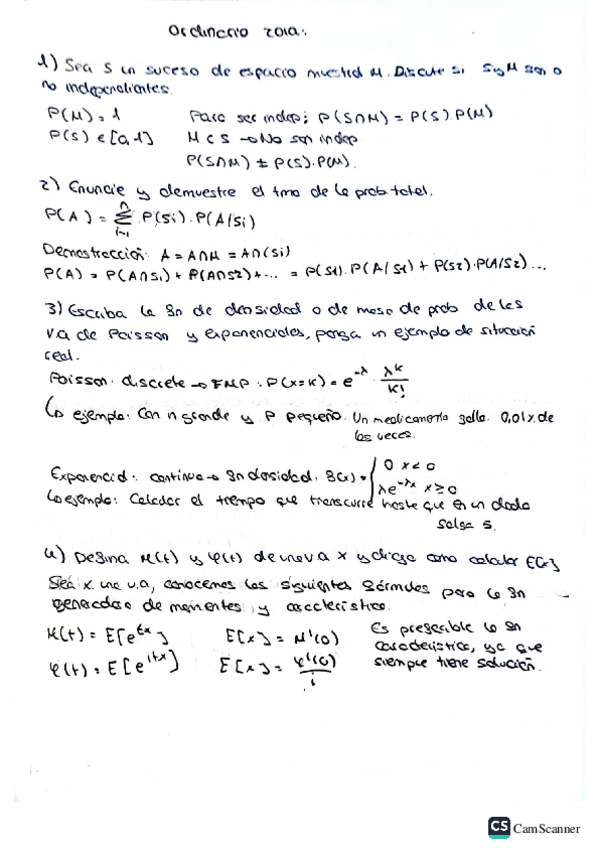 Ordinario 2019:
1) Sea S un suceso de espacio muestral M. Discute si S y M son o
no independientes.
P(M) = 1 Para ser indep: P(S∩M) = P(S).P(M)
P(S) ∈ [0,1] M ⊂ S → No son indep
P(S∩M) ≠ P(S).P(M).
2) Enuncie y demuestre el tma de la prob total.
P(A) = Σ P(Si).P(A/Si)
n
i=1
Demostración: A = A∩M = A∩(Si)
P(A) = P(A∩S1) + P(A∩S2) + ... = P(S1).P(A/S1) + P(S2).P(A/S2)...
3) Escriba la fn de densidad o de masa de prob de las
v.a de Poisson y exponenciales, ponga un ejemplo de situación
real.
Poisson: discreta → FMP: P(X=K) = e^-λ · λ^K/K!
↳ ejemplo: Con n grande y P pequeño. Un medicamento falla 0,01% de
las veces.
Exponencial: continua → fn densidad: f(x) = { 0 x<0
λe^-λx x≥0
↳ ejemplo: Calcular el tiempo que transcurre hasta que en un dado
salga 5.
4) Defina M(t) y φ(t) de una v.a x y diga como calcular E[x]
Sea x una v.a, conocemos las siguientes fórmulas para la fn
generadora de momentos y característica.
M(t) = E[e^tx] E[x] = M'(0) Es preferible la fn
característica, ya que
φ(t) = E[e^itx] E[x] = φ'(0)/i siempre tiene solución.
CS CamScanner